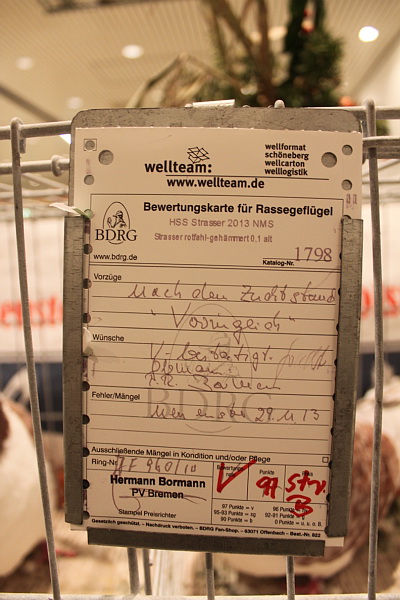 wellteam:
wellformat
schöneberg
wellcarton
welllogistik
www.wellteam.de
Bewertungskarte für Rassegeflügel
HSS Strasser 2013 NMS
Strasser rotfahl-gehämmert 0,1 alt
BDRG
www.bdrg.de
Katalog-Nr. 1798
Vorzüge
Nach dem Zuchtstand
"Vorzüglich"
Wünsche
V - bestätigt.
Fehler/Mängel
29.11.13
Ausschließende Mängel in Kondition und/oder Pflege
Ring-Nr.
Hermann Bormann
PV Bremen
Stempel Preisrichter
Punkte
97
97 Punkte = v
95-93 Punkte = sg
90 Punkte = b
96 Punkte
92-91 Punkte
0 Punkte = u. o. B.
Gesetzlich geschützt - Nachdruck verboten. - BDRG Fan-Shop. - 63071 Offenbach - Best.-Nr. 922